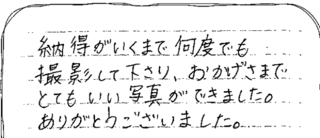 納得がいくまで何度でも
撮影して下さり、おかげさまで
とてもいい写真ができました。
ありがとうございました。